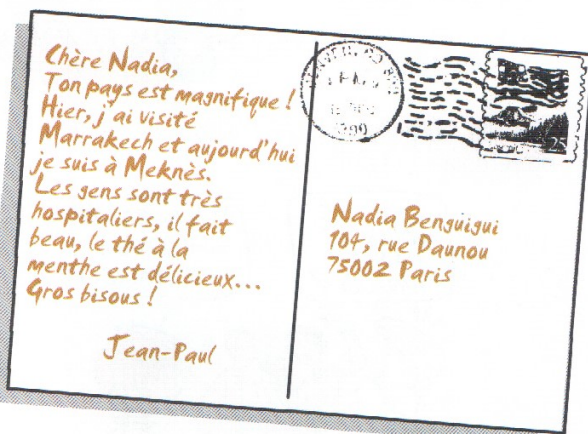 Chère Nadia,
Ton pays est magnifique !
Hier, j'ai visité
Marrakech et aujourd'hui
je suis à Meknès.
Les gens sont très
hospitaliers, il fait
beau, le thé à la
menthe est délicieux...
Gros bisous !
Jean-Paul
PM
25
Nadia Benguigui
104, rue Daunou
75002 Paris